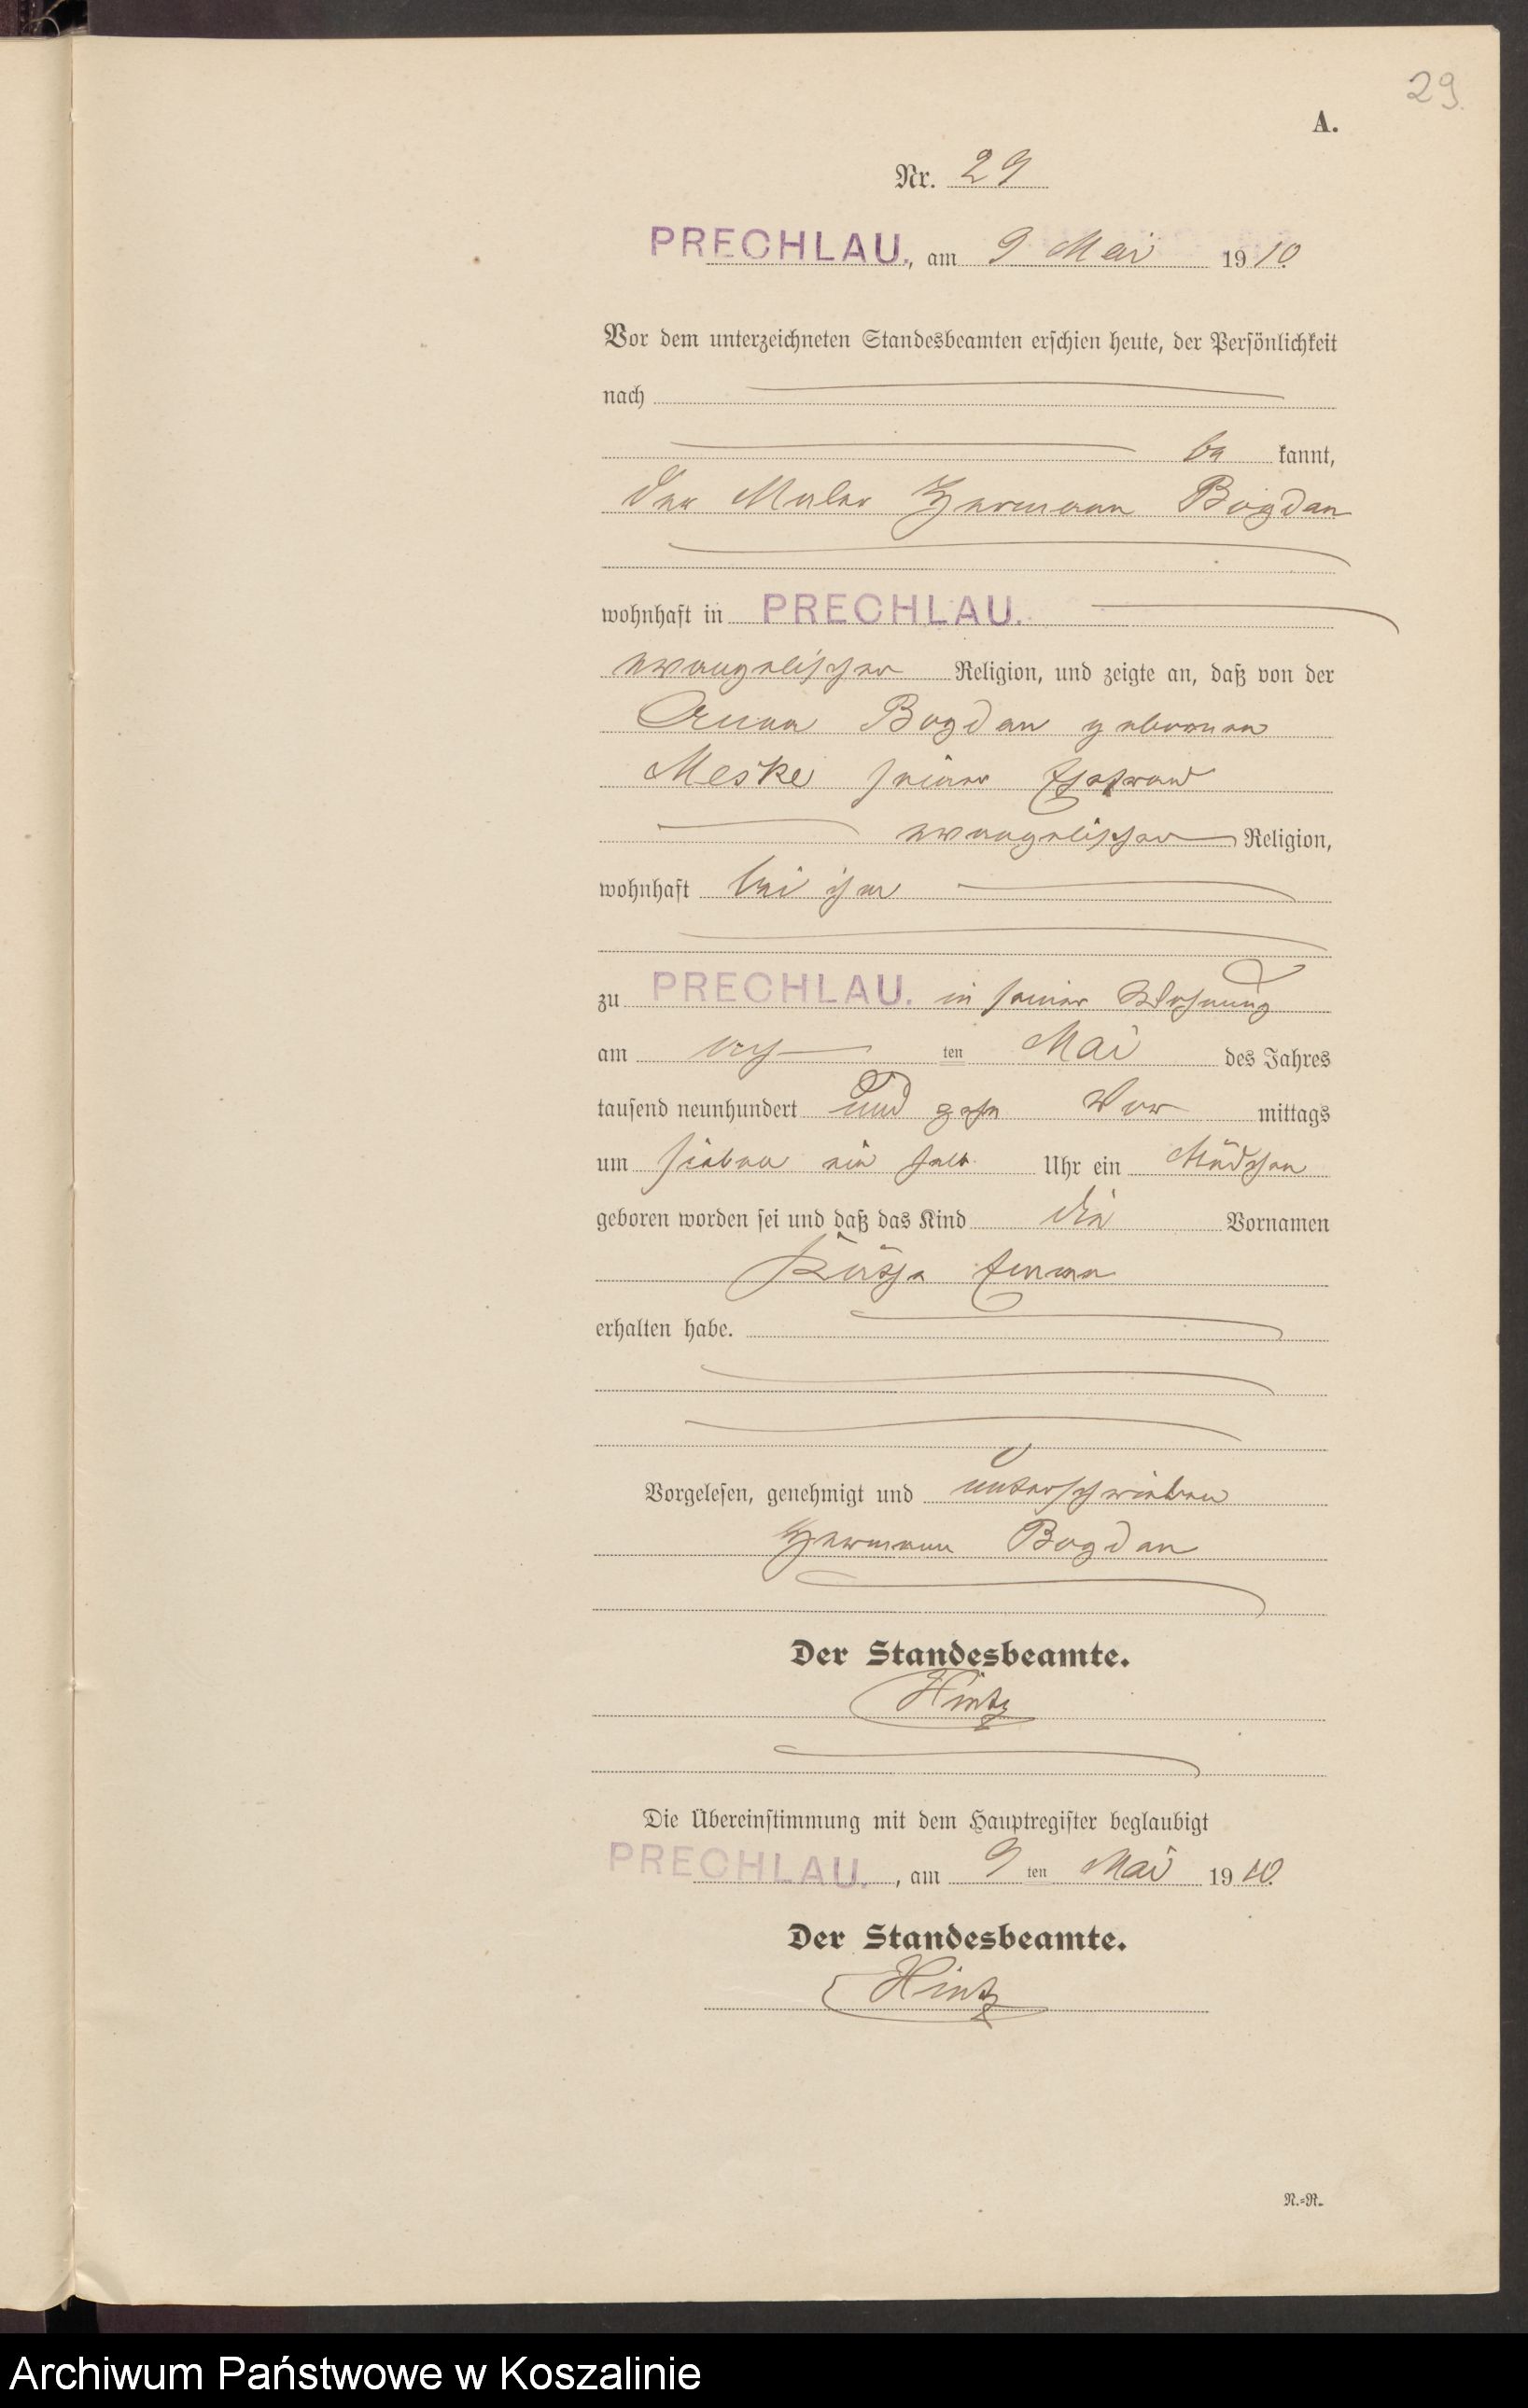 29.
A.
Nr. 29
PRECHLAU., am 9 Mai 1910.
Vor dem unterzeichneten Standesbeamten erschien heute, der Persönlichkeit
nach
be kannt,
der Maler Hermann Bogdan
wohnhaft in PRECHLAU.
evangelischer Religion, und zeigte an, daß von der
Anna Bogdan geborenen
Meske seiner Ehefrau
evangelischer Religion,
wohnhaft bei ihm
zu PRECHLAU. in seiner Wohnung
am ten Mai des Jahres
tausend neunhundert und zehn Vor mittags
um sieben ein halb Uhr ein Mädchen
geboren worden sei und daß das Kind die Vornamen
Käthe Emma
erhalten habe.
Vorgelesen, genehmigt und unterschrieben
Hermann Bogdan
Der Standesbeamte.
Hintz
Die Übereinstimmung mit dem Hauptregister beglaubigt
PRECHLAU., am 9 ten Mai 1910.
Der Standesbeamte.
Hintz
N.=R.
Archiwum Państwowe w Koszalinie